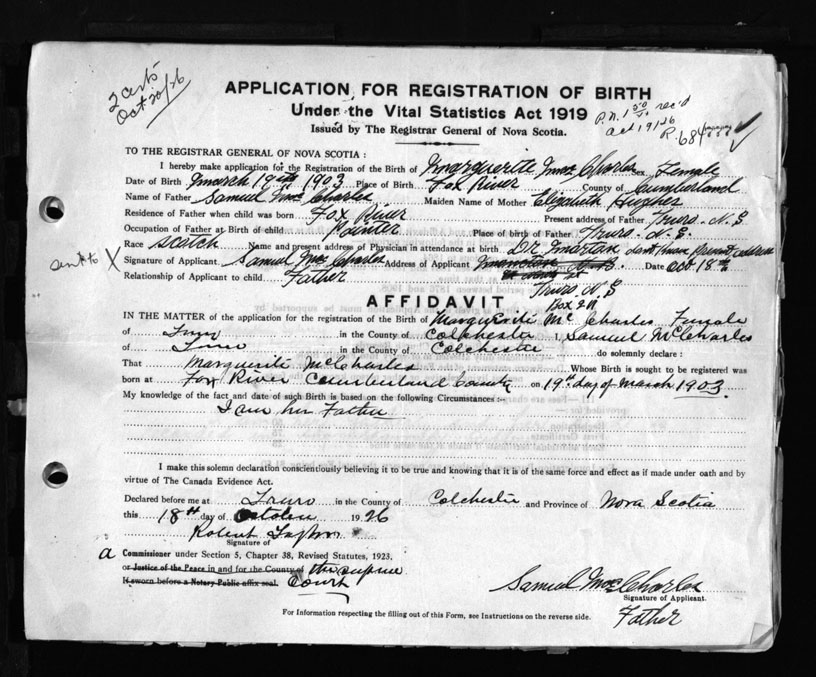 2 certs
Oct 20/26
APPLICATION FOR REGISTRATION OF BIRTH
Under the Vital Statistics Act 1919
Issued by The Registrar General of Nova Scotia.
P.N. 1 50 rec'd
Oct 19/26
P. 684
TO THE REGISTRAR GENERAL OF NOVA SCOTIA :
I hereby make application for the Registration of the Birth of Marguerite McCharles Sex Female
Date of Birth March 19th 1903 Place of Birth Fox River County of Cumberland
Name of Father Samuel McCharles Maiden Name of Mother Elizabeth Hughes
Residence of Father when child was born Fox River Present address of Father Truro. N. S
Occupation of Father at Birth of child Painter Place of birth of Father Truro. N. S.
Race Scotch Name and present address of Physician in attendance at birth DR. Martan dont know present address
sent to X Signature of Applicant Samuel McCharles Address of Applicant Date Oct. 18th
Relationship of Applicant to child Father
Truro N. S
Box
AFFIDAVIT
IN THE MATTER of the application for the registration of the Birth of Marguerite McCharles Female
of Truro in the County of Colchester I, Samuel McCharles
of Truro in the County of Colchester do solemnly declare :
That Marguerite McCharles Whose Birth is sought to be registered was
born at Fox River Cumberland County on 19th day of March 1903.
My knowledge of the fact and date of such Birth is based on the following Circumstances :—
I am her Father
I make this solemn declaration conscientiously believing it to be true and knowing that it is of the same force and effect as if made under oath and by
virtue of The Canada Evidence Act.
Declared before me at Truro in the County of Colchester and Province of Nova Scotia
this 18th day of October 1926
Robert
Signature of
a Commissioner under Section 5, Chapter 38, Revised Statutes, 1923.
or Justice of the Peace in and for the County of the supreme
If sworn before a Notary Public affix seal. Court
Samuel McCharles
Signature of Applicant.
Father
For Information respecting the filling out of this Form, see Instructions on the reverse side.